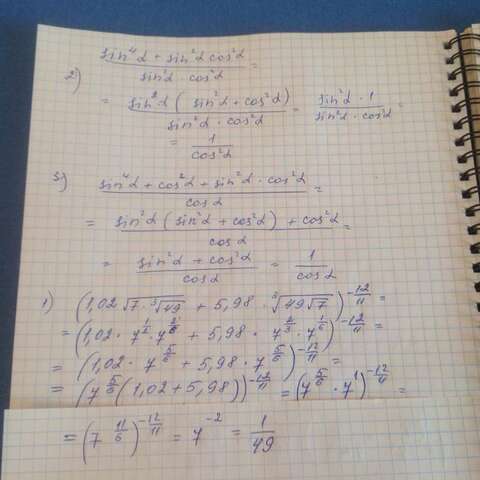 2) (sin⁴α + sin²α cos²α)/(sin²α · cos²α) =
= (sin²α (sin²α + cos²α))/(sin²α · cos²α) = (sin²α · 1)/(sin²α · cos²α) =
= 1/cos²α
3) (sin⁴α + cos²α + sin²α · cos²α)/(cos α) =
= (sin²α (sin²α + cos²α) + cos²α)/(cos α) =
= (sin²α + cos²α)/(cos α) = 1/(cos α)
1) (1,02 √7 · ³√49 + 5,98 · ³√(49√7))^(-12/11) =
= (1,02 · 7^(1/2) · 7^(2/6) + 5,98 · 7^(2/3) · 7^(1/6))^(-12/11) =
= (1,02 · 7^(5/6) + 5,98 · 7^(5/6))^(-12/11) =
= (7^(5/6) (1,02 + 5,98))^(-12/11) = (7^(5/6) · 7¹)^(-12/11) =
= (7^(11/6))^(-12/11) = 7^(-2) = 1/49